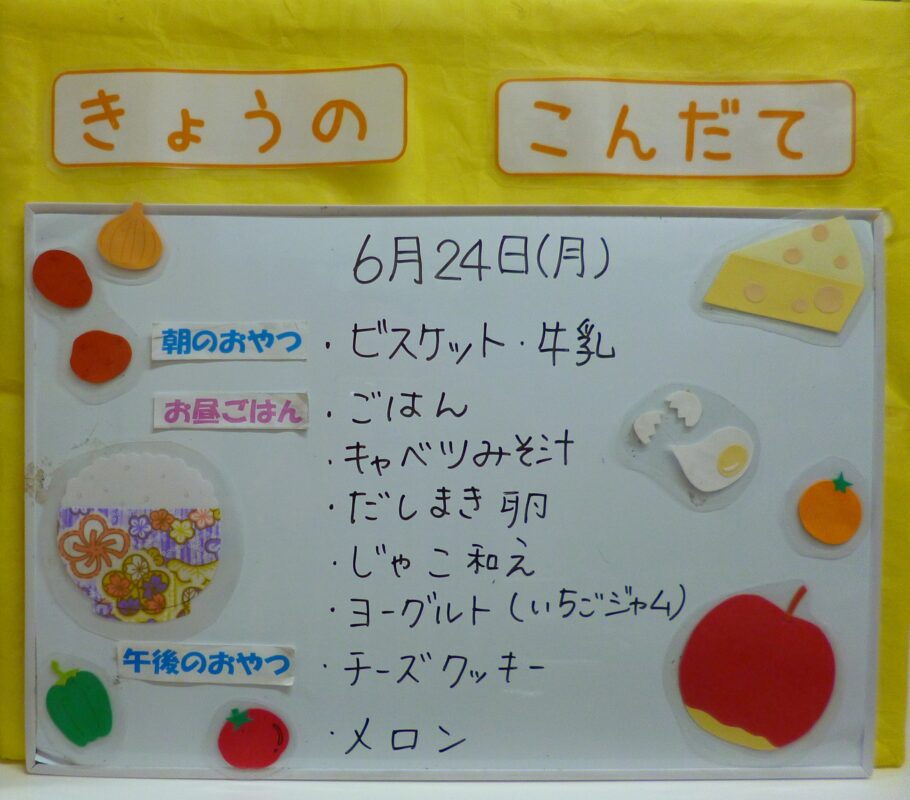 きょうの こんだて
6月24日(月)
朝のおやつ ・ビスケット・牛乳
お昼ごはん ・ごはん
・キャベツみそ汁
・だしまき卵
・じゃこ和え
・ヨーグルト(いちごジャム)
午後のおやつ ・チーズクッキー
・メロン